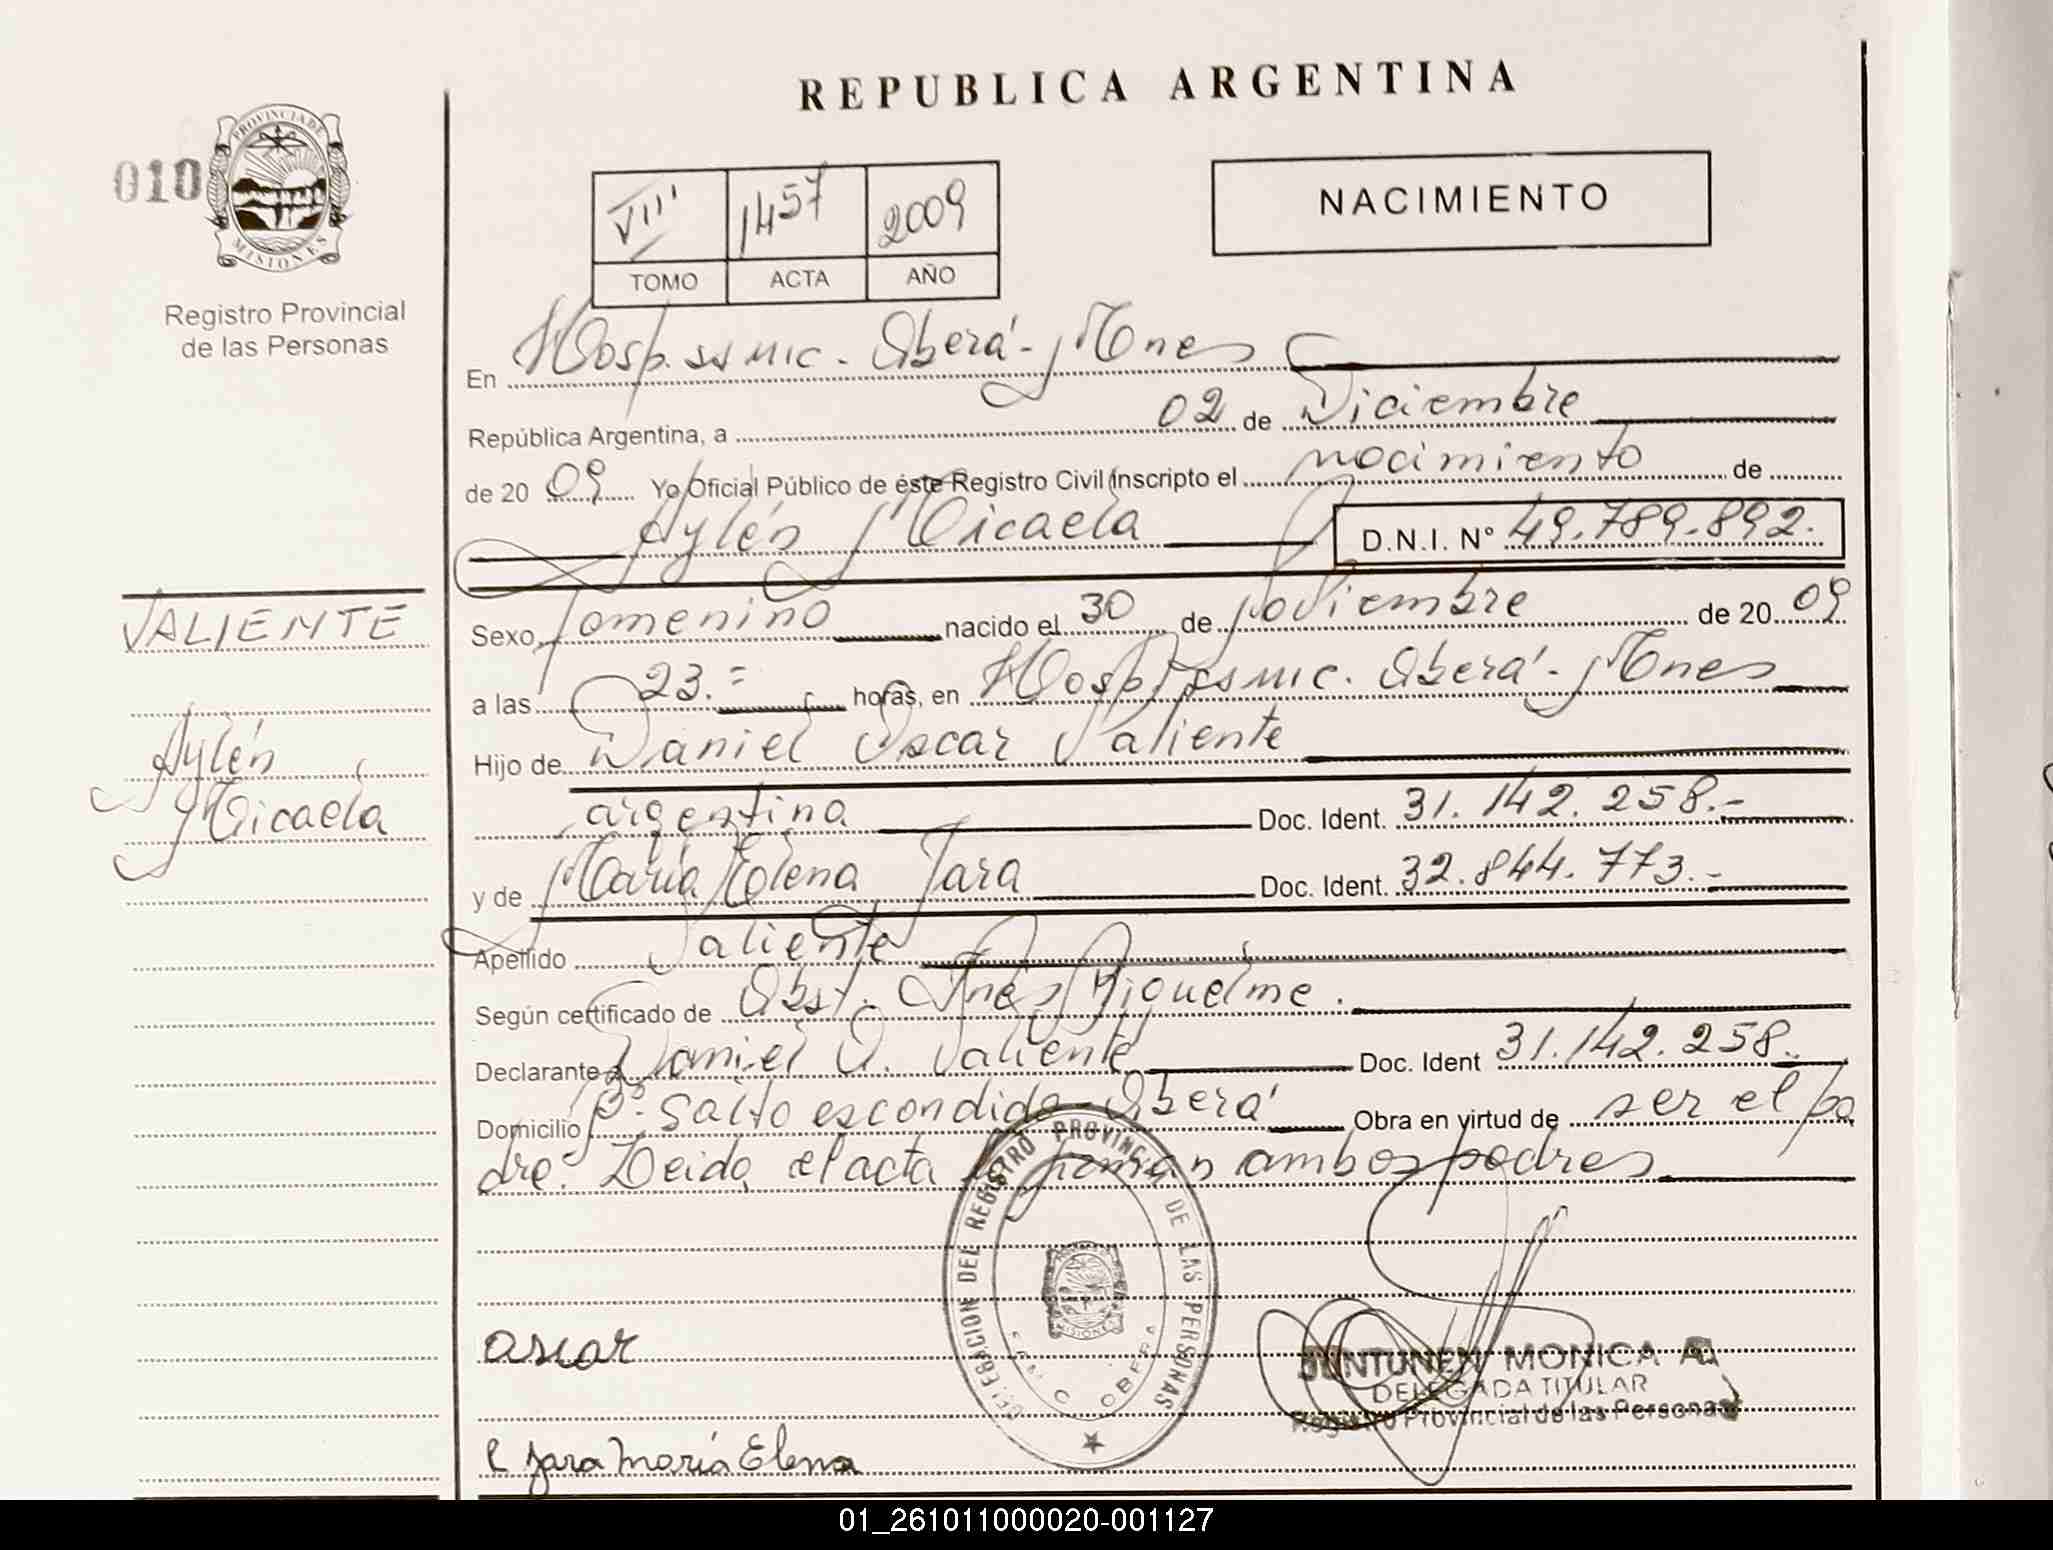 REPUBLICA ARGENTINA
010
PROVINCIA DE
MISIONES
Registro Provincial
de las Personas
VIII 1457 2009
TOMO ACTA AÑO
NACIMIENTO
En Hosp. ssmic. Oberá - Mnes
República Argentina, a 02 de Diciembre
de 20 09 Yo Oficial Público de éste Registro Civil inscripto el nacimiento de
Aylén Micaela D.N.I. Nº 49.789.892.
VALIENTE
Aylén
Micaela
Sexo femenino nacido el 30 de Noviembre de 20 09
a las 23.= horas, en Hosp. ssmic. Oberá - Mnes
Hijo de Daniel Oscar Valiente
argentina Doc. Ident. 31.142.258.-
y de María Elena Jara Doc. Ident. 32.844.773.-
Apellido Valiente
Según certificado de Obst. Inés Riquelme.
Declarante Daniel O. Valiente Doc. Ident 31.142.258.
Domicilio Pº Salto escondido - Oberá Obra en virtud de ser el pa
dre.= Leida el acta firman ambos padres
DELEGACION DEL REGISTRO PROVINCIAL DE LAS PERSONAS
MISIONES
OBERA
oscar
JUNTUNEN MONICA A.
DELEGADA TITULAR
Registro Provincial de las Personas
Jara María Elena
01_261011000020-001127